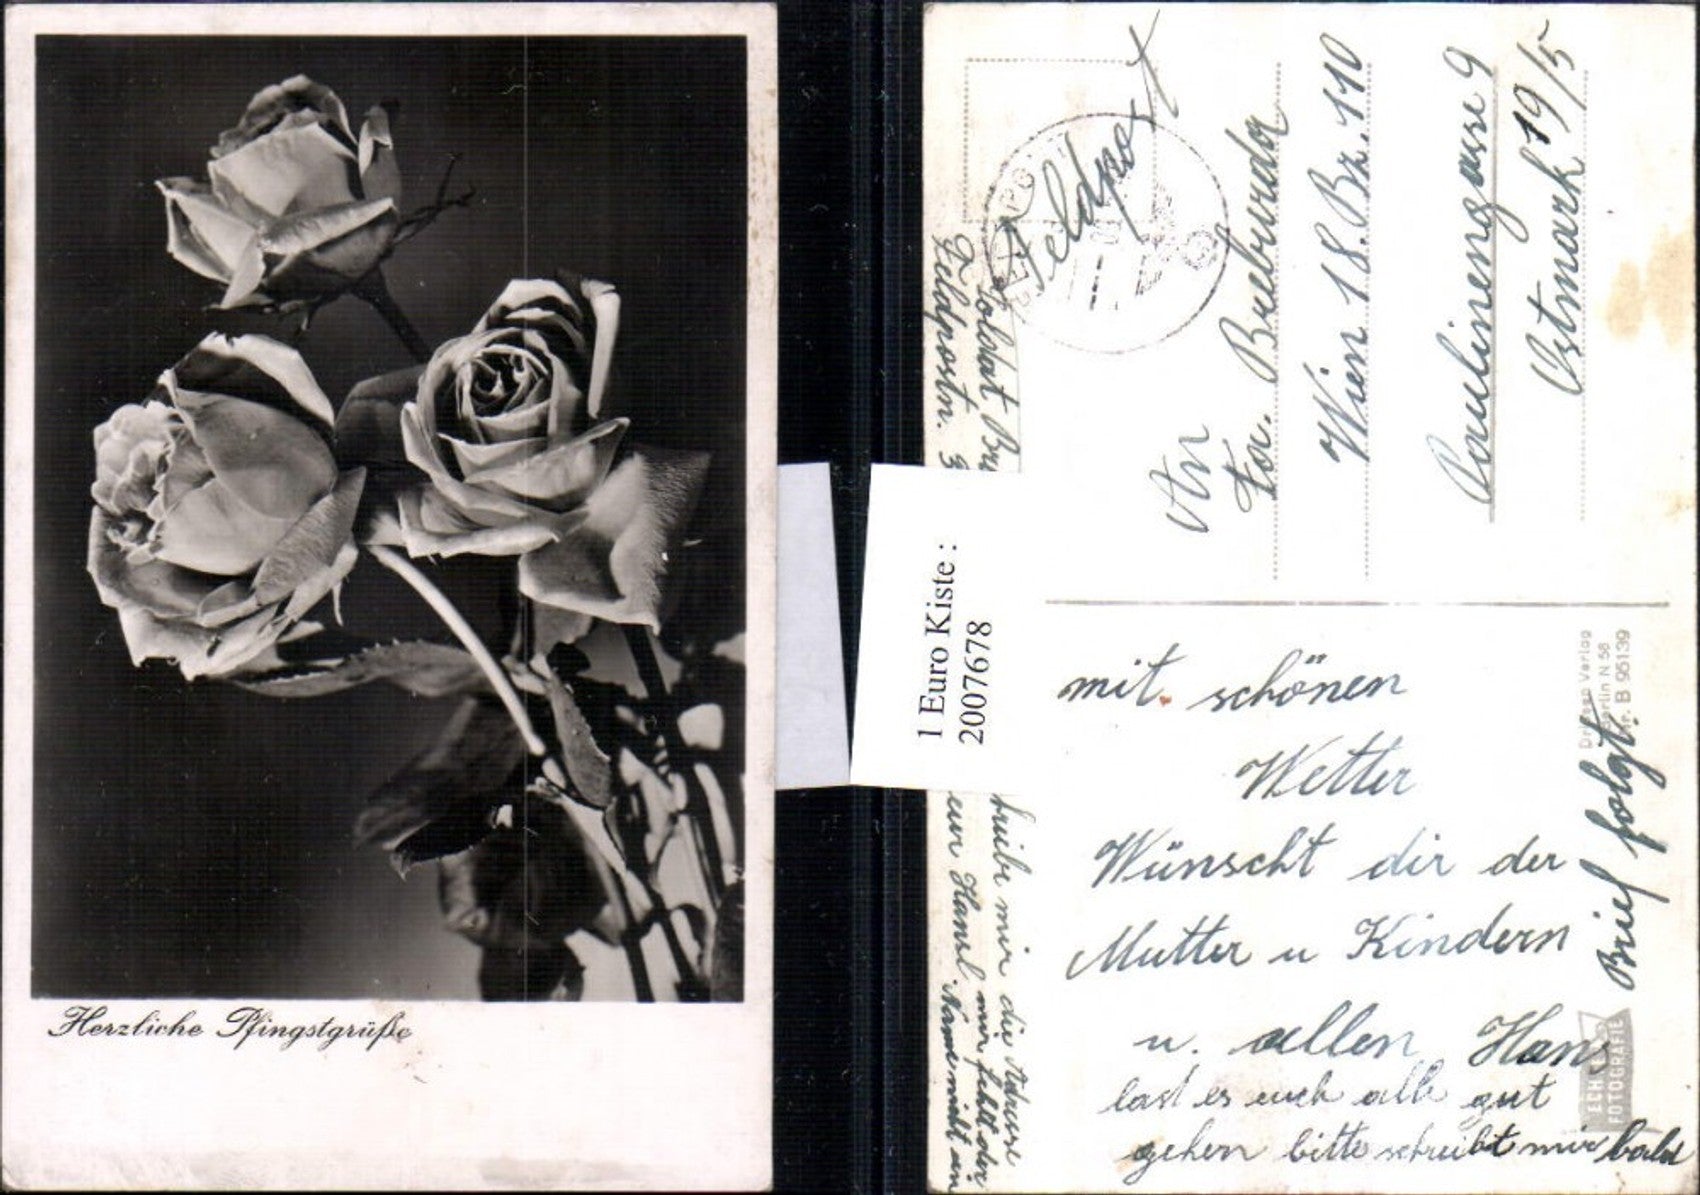 Herzliche Pfingstgrüße
1 Euro Kiste :
2007678
Feldpost
An
Fa. Breburda
Wien 18. Bz. 110
Paulinengasse 9
Ostmark 19/5
Soldat
Feldpostn. 3
mit schönen
Wetter
Wünscht dir der
Mutter u Kindern
u. allen Hans
last es euch alle gut
gehen bitte schreibt mir bald
Brief folgt.
mir die Adresse
eur Hansl. mir fehlt der
Name nicht ein
Verlag
Berlin N 58
Nr. B 95139
ECHTE
FOTOGRAFIE